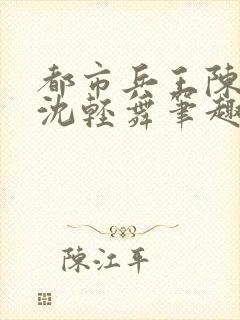 都市兵王陳
沈輕舞筆趣
陳江平